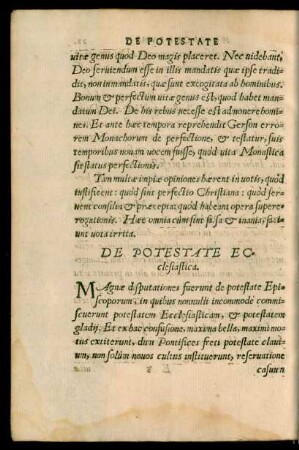 DE POTESTATE
vitæ genus quod Deo magis placeret. Nec videbant,
Deo seruiendum esse in illis mandatis quæ ipse tradi-
dit, non in mandatis, quæ sunt excogitata ab hominibus.
Bonum & perfectum vitæ genus est, quod habet man-
datum Dei. De his rebus necesse est admonere homi-
nes. Et ante hæc tempora reprehendit Gerson errorem
Monachorum de perfectione, & testatur, suis
temporibus nouam vocem fuisse, quod vita Monastica
sit status perfectionis.
Tam multæ impiæ opiniones hærent in votis, quod
iustificent: quod sint perfectio Christiana: quod ser-
uent consilia & præcepta: quod habeant opera supere-
rogationis. Hæc omnia cum sint falsa & inania, faci-
unt vota irrita.
DE POTESTATE EC-
clesiastica.
MAgnæ disputationes fuerunt de potestate Epi-
scoporum, in quibus nonnulli incommodè commi-
scuerunt potestatem Ecclesiasticam, & potestatem
gladij. Et ex hac confusione, maxima bella, maximi mo-
tus extiterunt, dum Pontifices freti potestate claui-
um, non solùm nouos cultus instituerunt, reseruatione
casuum